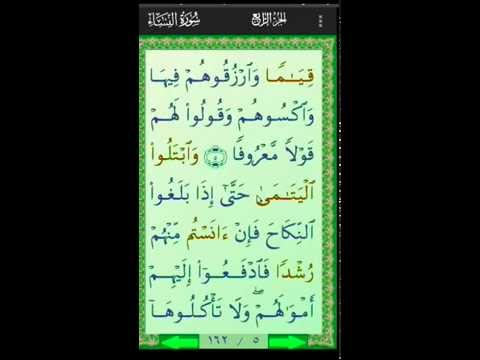 سُورَةُ النِّسَاءِ الجُزْءُ الرَّابِعُ
قِيَـٰمًا وَٱرْزُقُوهُمْ فِيهَا
وَٱكْسُوهُمْ وَقُولُوا۟ لَهُمْ
قَوْلًا مَّعْرُوفًا ۝٥ وَٱبْتَلُوا۟
ٱلْيَتَـٰمَىٰ حَتَّىٰٓ إِذَا بَلَغُوا۟
ٱلنِّكَاحَ فَإِنْ ءَانَسْتُم مِّنْهُمْ
رُشْدًا فَٱدْفَعُوٓا۟ إِلَيْهِمْ
أَمْوَٰلَهُمْ ۖ وَلَا تَأْكُلُوهَآ
١٦٢ / ٥